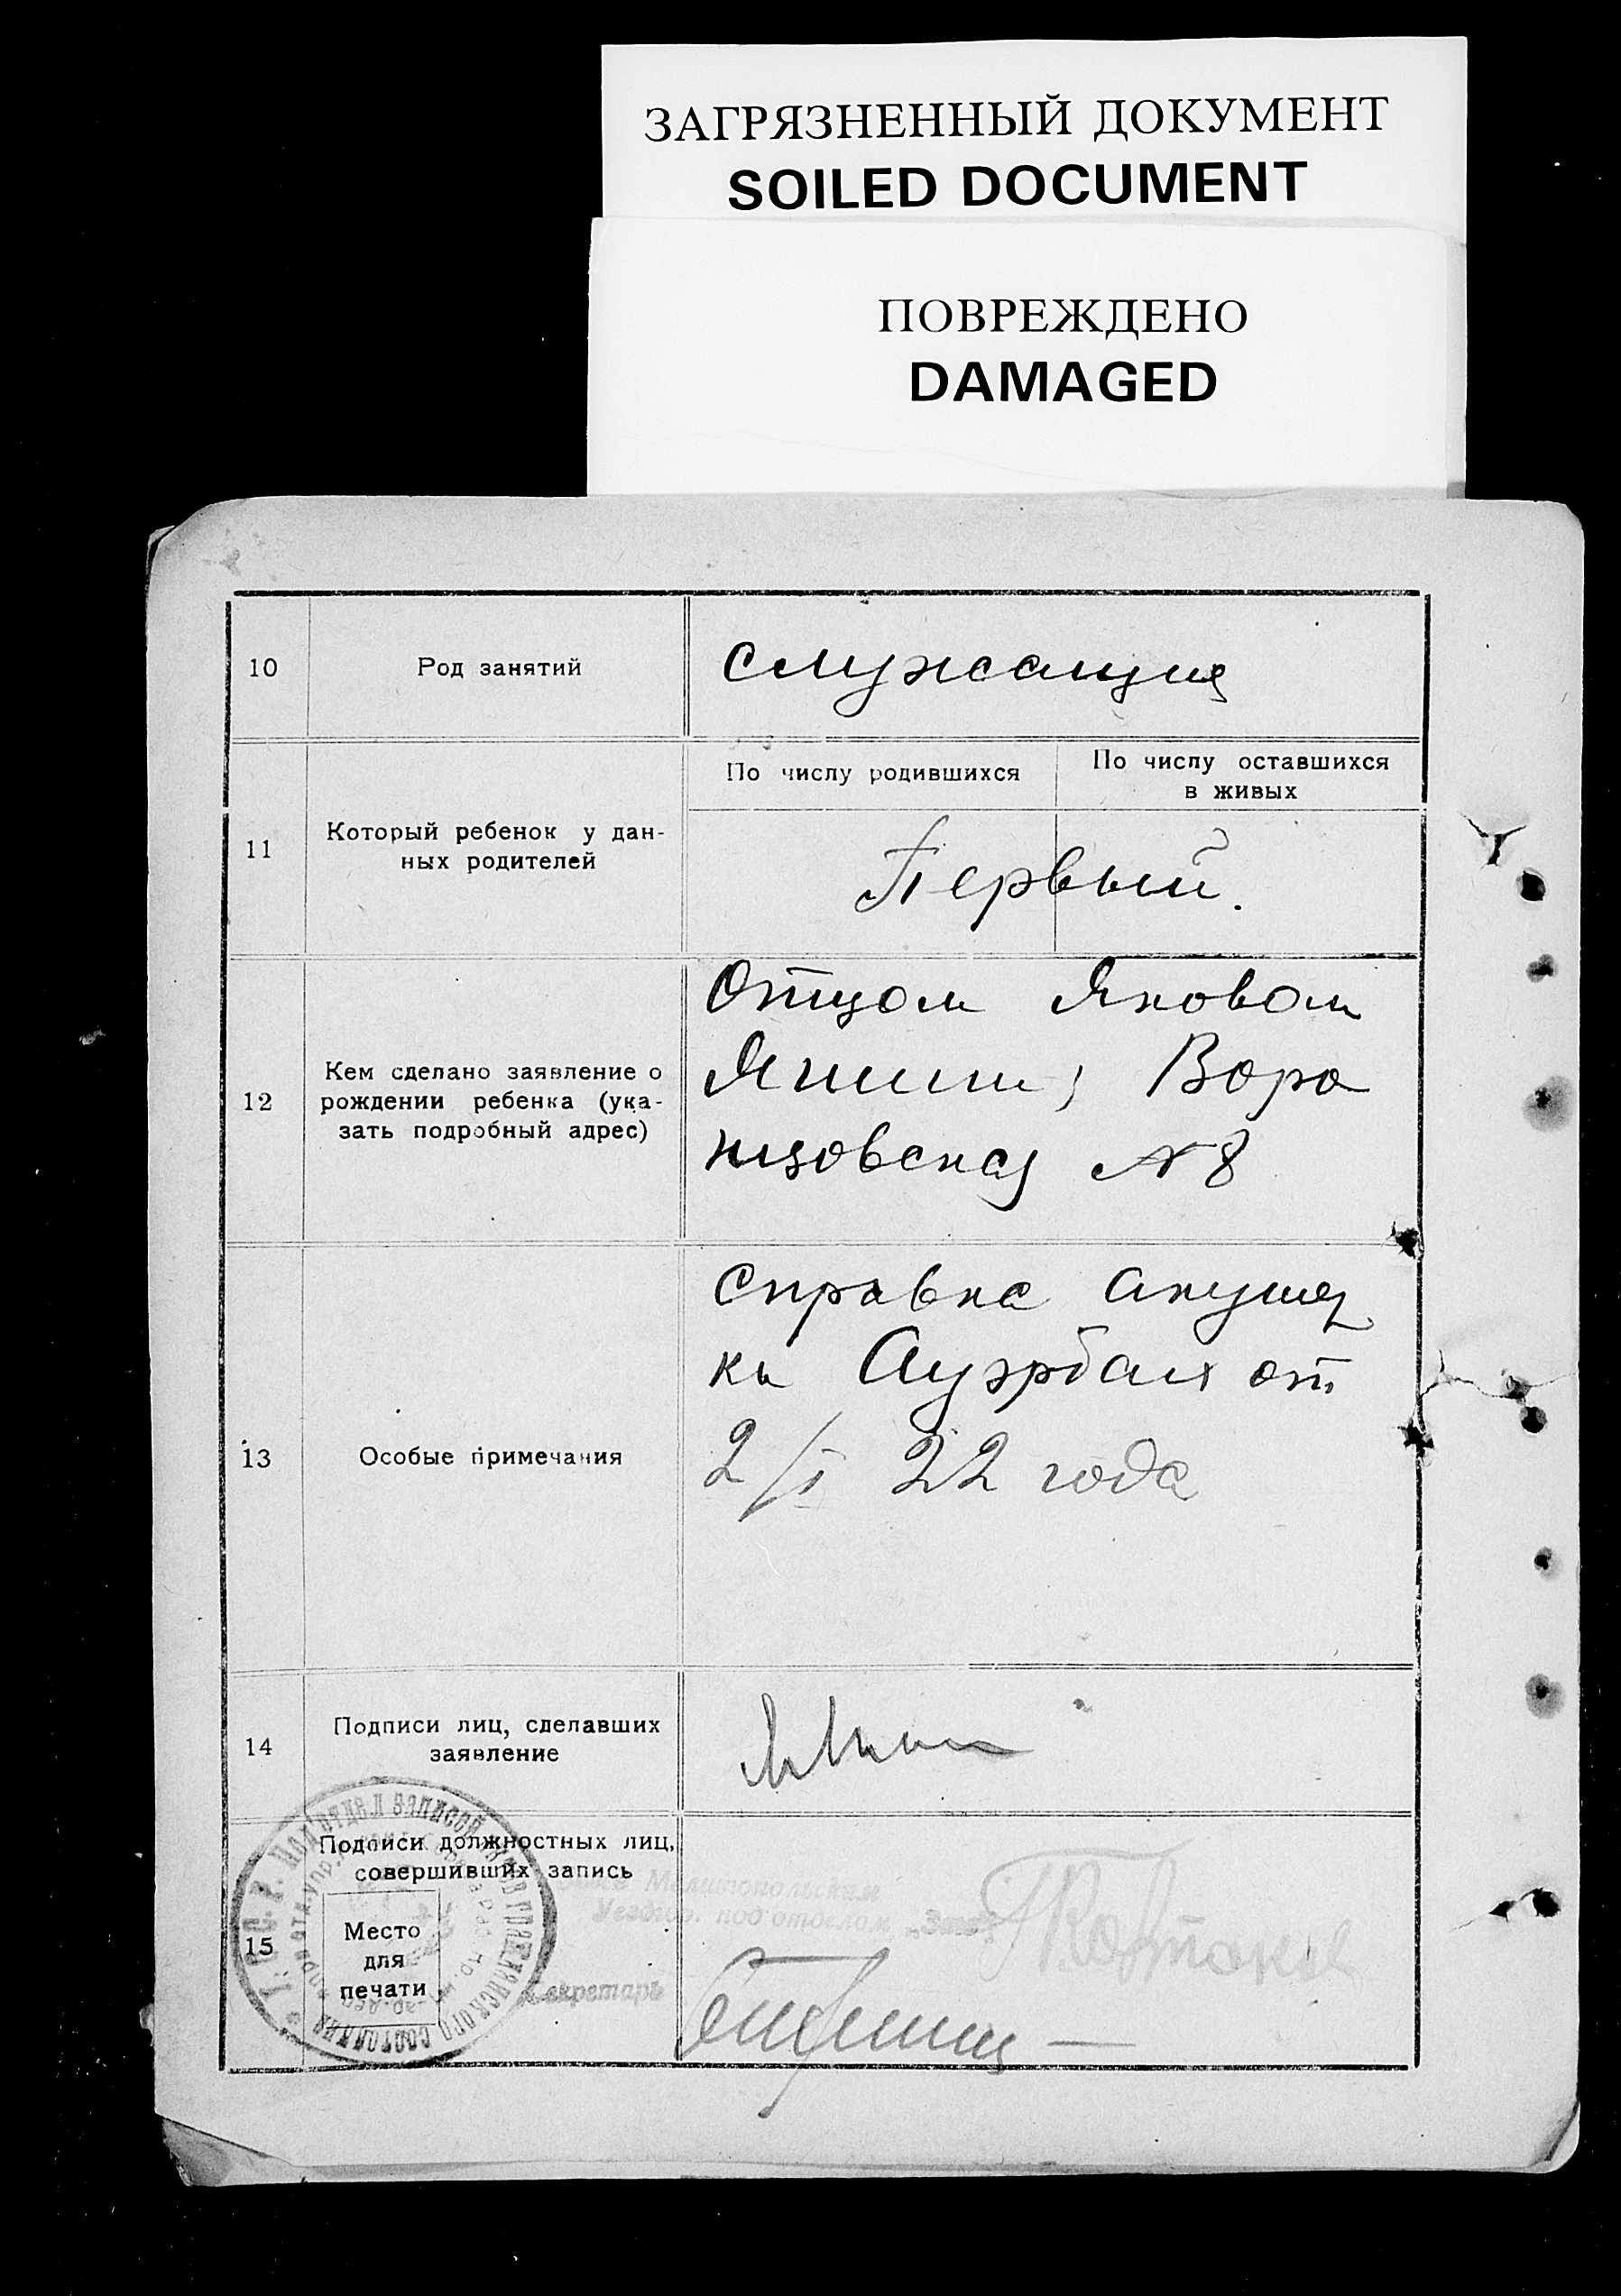 ЗАГРЯЗНЕННЫЙ ДОКУМЕНТ
SOILED DOCUMENT
ПОВРЕЖДЕНО
DAMAGED
10 Род занятий служащия
11 Который ребенок у дан-
ных родителей
По числу родившихся
По числу оставшихся
в живых
Первый.
12 Кем сделано заявление о
рождении ребенка (ука-
зать подробный адрес)
Отцом Яковом
Воро
нцовская № 8
13 Особые примечания
Справка акушер
ки Ауэрбах от
2/I 22 года
14 Подписи лиц, сделавших
заявление
15 Подписи должностных лиц,
совершивших запись
Место
для
печати
Подотдел записей актов гражданского состояния
Мелитопольским
Уездгор. подотделом
Секретарь